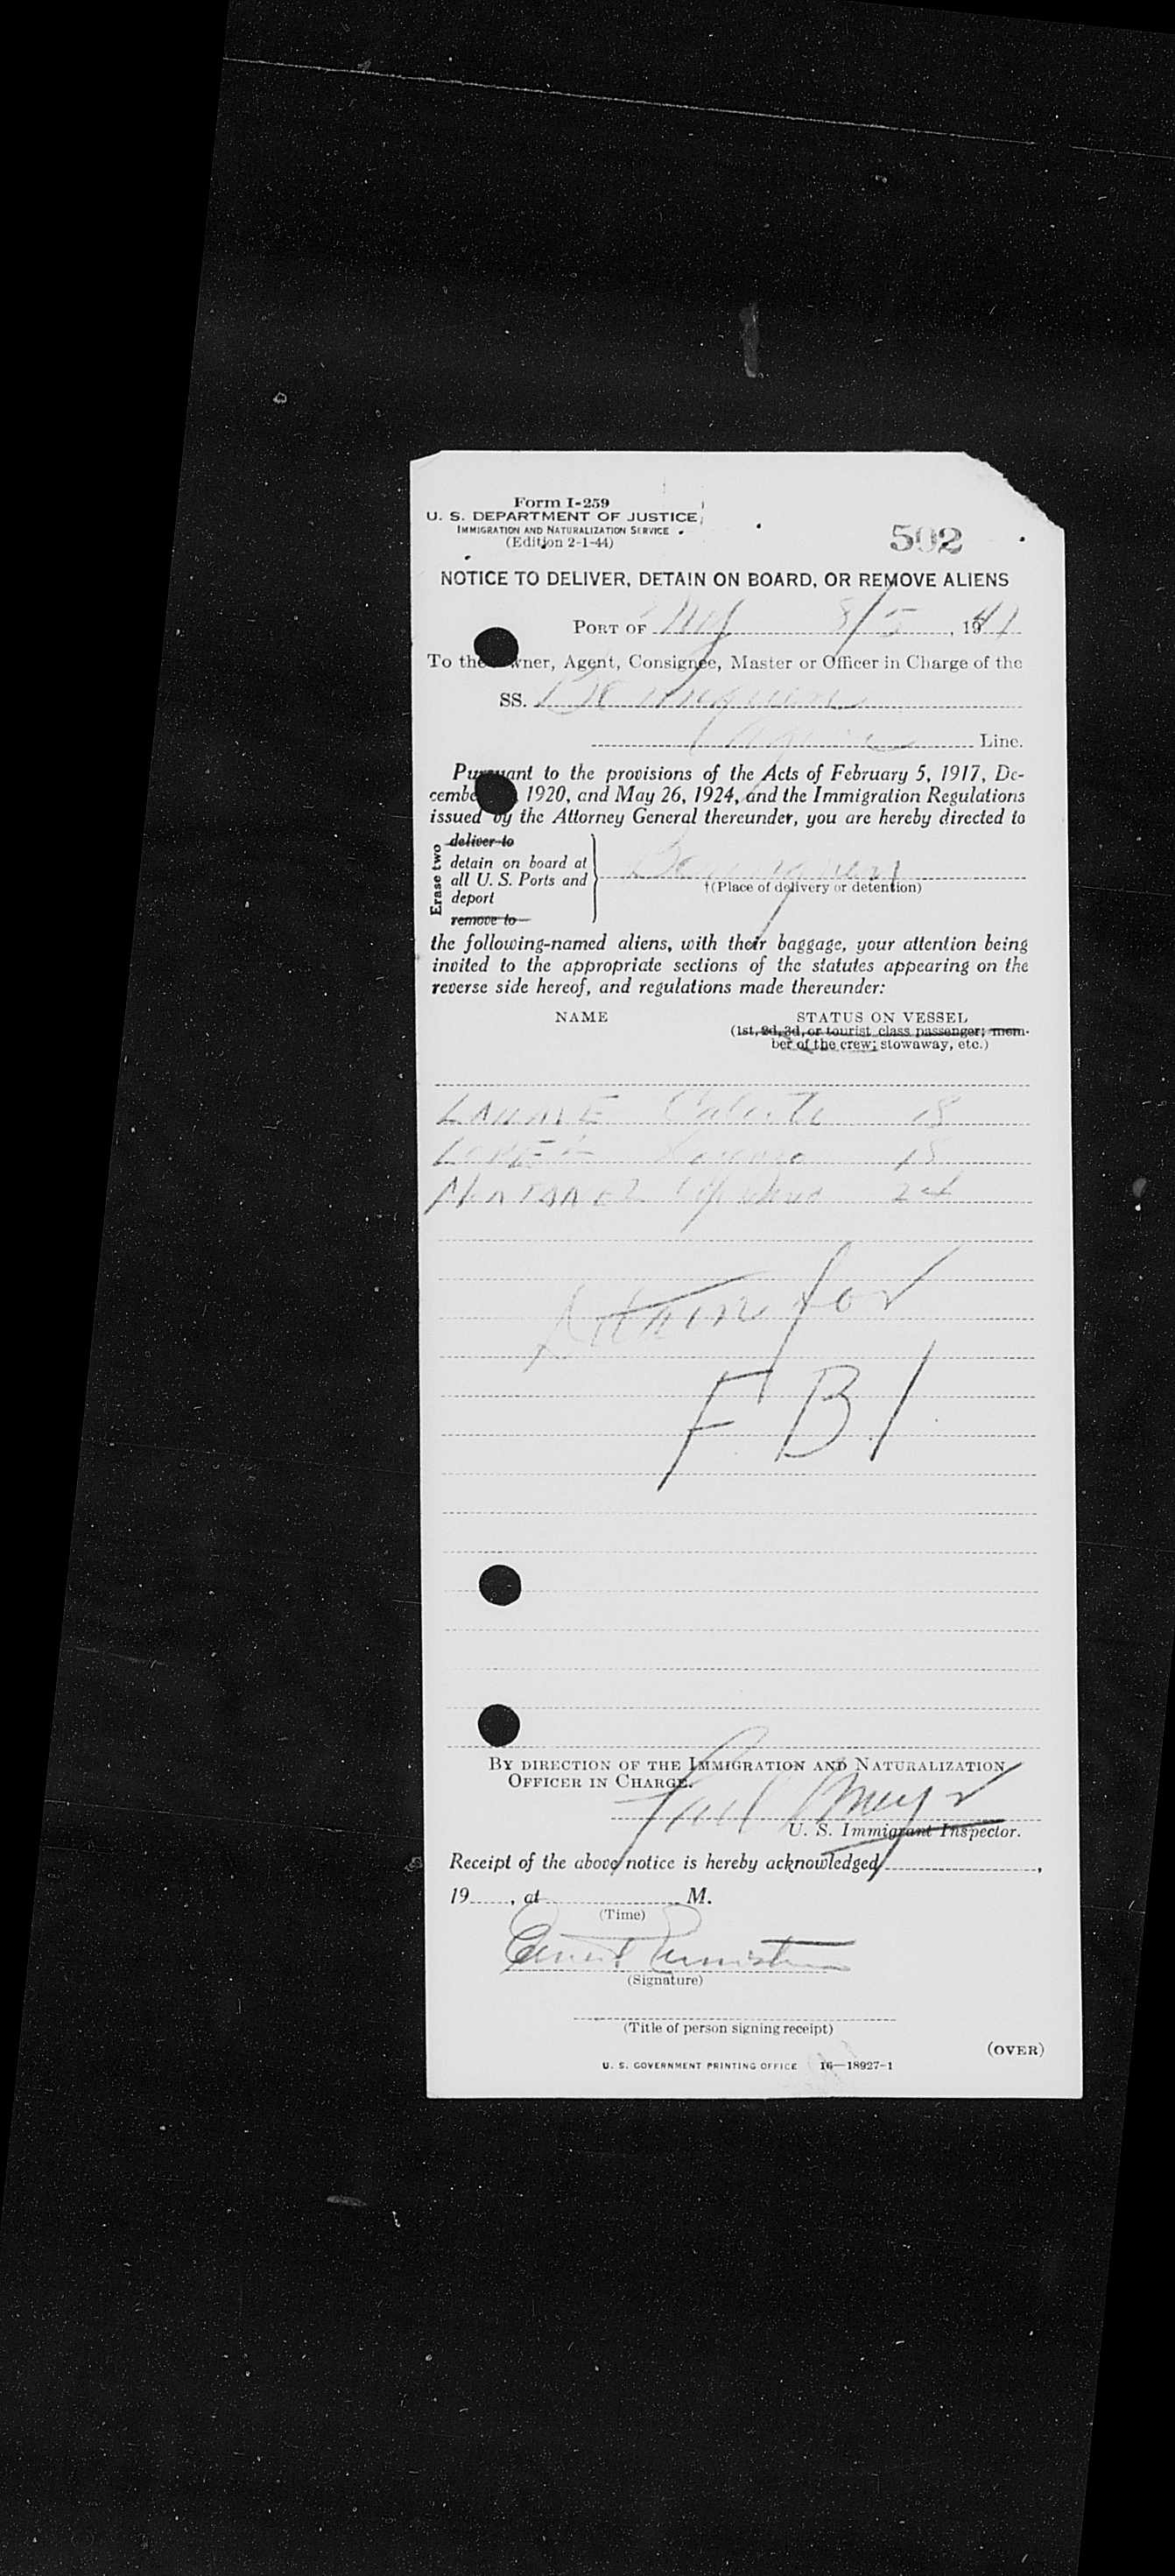 Form I-259
U. S. DEPARTMENT OF JUSTICE
IMMIGRATION AND NATURALIZATION SERVICE
(Edition 2-1-44)
502
NOTICE TO DELIVER, DETAIN ON BOARD, OR REMOVE ALIENS
PORT OF NY 8/5, 19
To the Owner, Agent, Consignee, Master or Officer in Charge of the
SS.
Line.
Pursuant to the provisions of the Acts of February 5, 1917, De-
cember 1920, and May 26, 1924, and the Immigration Regulations
issued by the Attorney General thereunder, you are hereby directed to
Erase two
deliver to
detain on board at
all U. S. Ports and
deport
remove to
†(Place of delivery or detention)
the following-named aliens, with their baggage, your attention being
invited to the appropriate sections of the statutes appearing on the
reverse side hereof, and regulations made thereunder:
NAME STATUS ON VESSEL
(1st, 2d, 3d, or tourist class passenger; mem-
ber of the crew; stowaway, etc.)
18
LOPEZ 18
24
Detain for
FBI
BY DIRECTION OF THE IMMIGRATION AND NATURALIZATION
OFFICER IN CHARGE.
U. S. Immigrant Inspector.
Receipt of the above notice is hereby acknowledged ,
19 , at M.
(Time)
(Signature)
(Title of person signing receipt)
(OVER)
U. S. GOVERNMENT PRINTING OFFICE 16—18927-1